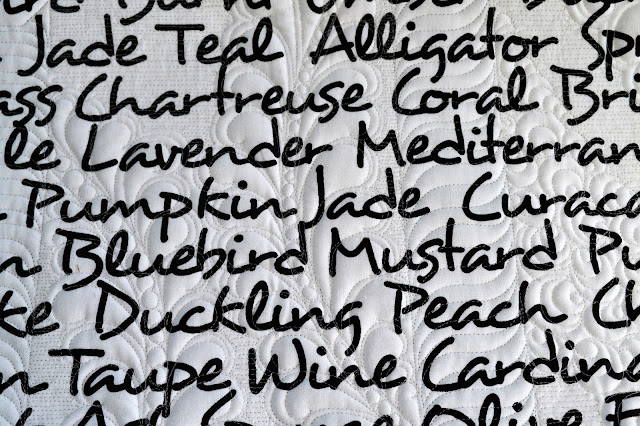 Jade Teal Alligator Sp
ass Chartreuse Coral Bri
le Lavender Mediterran
Pumpkin Jade Curaca
n Bluebird Mustard Pu
ke Duckling Peach Ch
n Taupe Wine Cardina
Olive